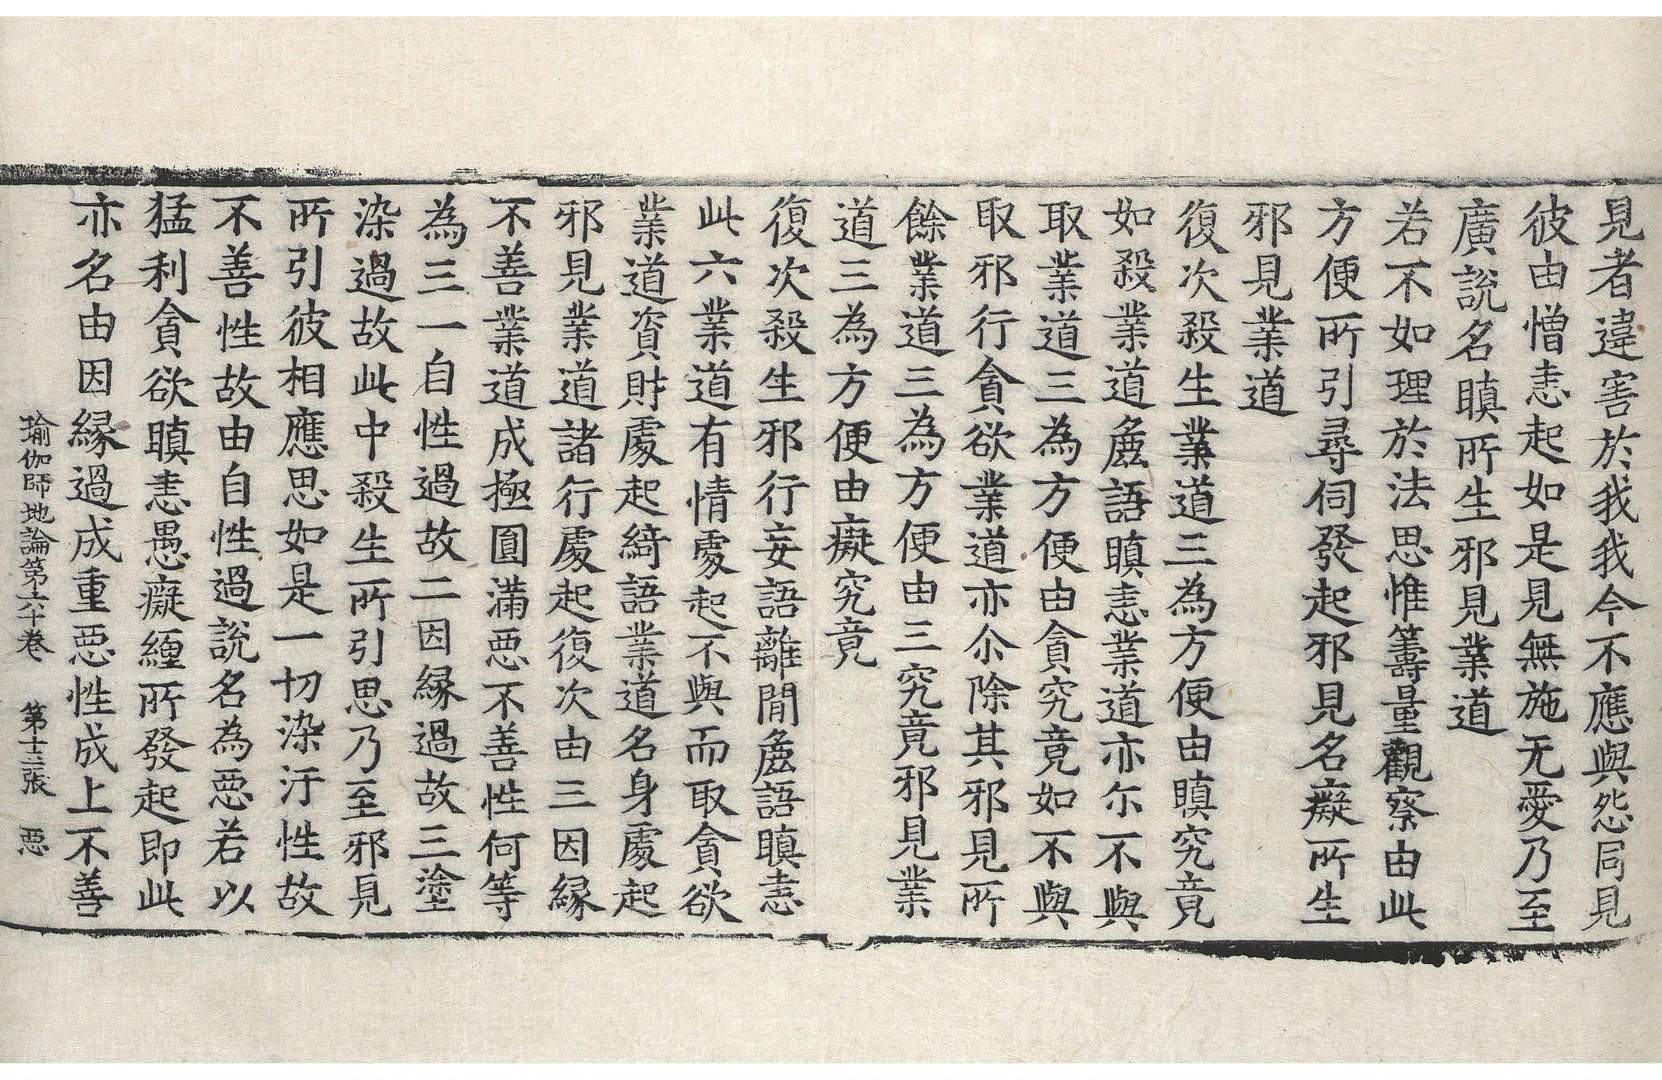 見者違害於我我今不應與怨同見
彼由憎恚起如是見無施无愛乃至
廣說名瞋所生邪見業道
若不如理於法思惟籌量觀察由此
方便所引尋伺發起邪見名癡所生
邪見業道
復次殺生業道三為方便由瞋究竟
如殺業道麁語瞋恚業道亦尒不與
取業道三為方便由貪究竟如不與
取邪行貪欲業道亦尒除其邪見所
餘業道三為方便由三究竟邪見業
道三為方便由癡究竟
復次殺生邪行妄語離間麁語瞋恚
此六業道有情處起不與而取貪欲
業道資財處起綺語業道名身處起
邪見業道諸行處起復次由三因緣
不善業道成極圓滿惡不善性何等
為三一自性過故二因緣過故三塗
染過故此中殺生所引思乃至邪見
所引彼相應思如是一切染汙性故
不善性故由自性過說名為惡若以
猛利貪欲瞋恚愚癡纏所發起即此
亦名由因緣過成重惡性成上不善
瑜伽師地論第六十卷　第十三張　惡